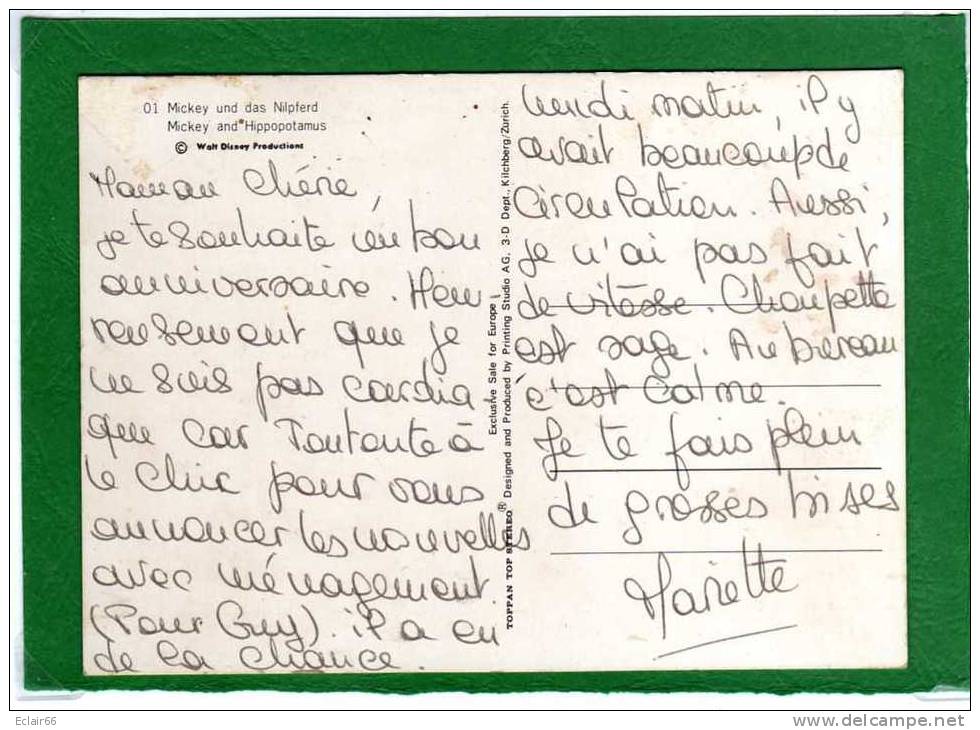 01 Mickey und das Nilpferd
Mickey and Hippopotamus
© Walt Disney Productions
Maman Chérie,
je te souhaite un bon
anniversaire. Heu-
reusement que je
ne suis pas cardia-
que car Tantante à
le chic pour vous
annoncer les nouvelles
avec ménagement.
(Pour Guy). il a eu
de la chance.
Exclusive Sale for Europe
TOPPAN TOP STEREO® Designed and Produced by Printing Studio AG, 3-D Dept., Kilchberg/Zurich.
lundi matin, il y
avait beaucoup de
circulation. Aussi,
je n'ai pas fait
de vitesse. Choupette
est sage. Au bureau
c'est calme.
Je te fais plein
de grosses bises
Mariette
Eclair66
www.delcampe.net